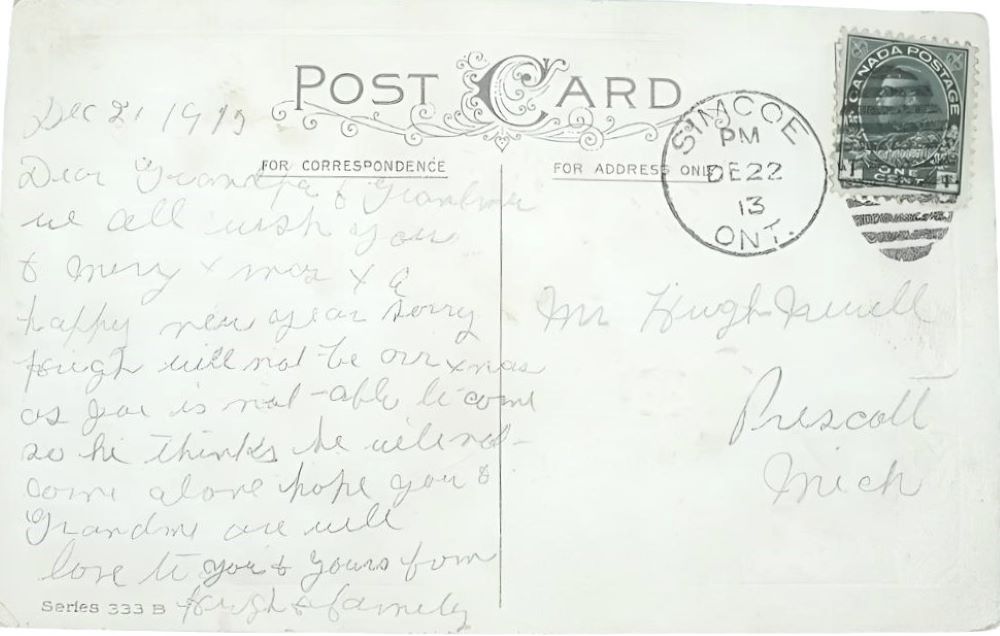 POST CARD
FOR CORRESPONDENCE
FOR ADDRESS ONLY
CANADA POSTAGE
ONE CENT
SIMCOE
PM
DE 22
13
ONT.
Dec 21 1913
Dear Grandpa & Grandma
we all wish you
a Merry Xmas & a
happy new year sorry
Hugh will not be our xmas
as Joe is not able to come
so he thinks he will not
come alone hope you &
Grandma are well
love to you & yours from
Hugh & family
Mr Hugh
Prescott
Mich
Series 333 B